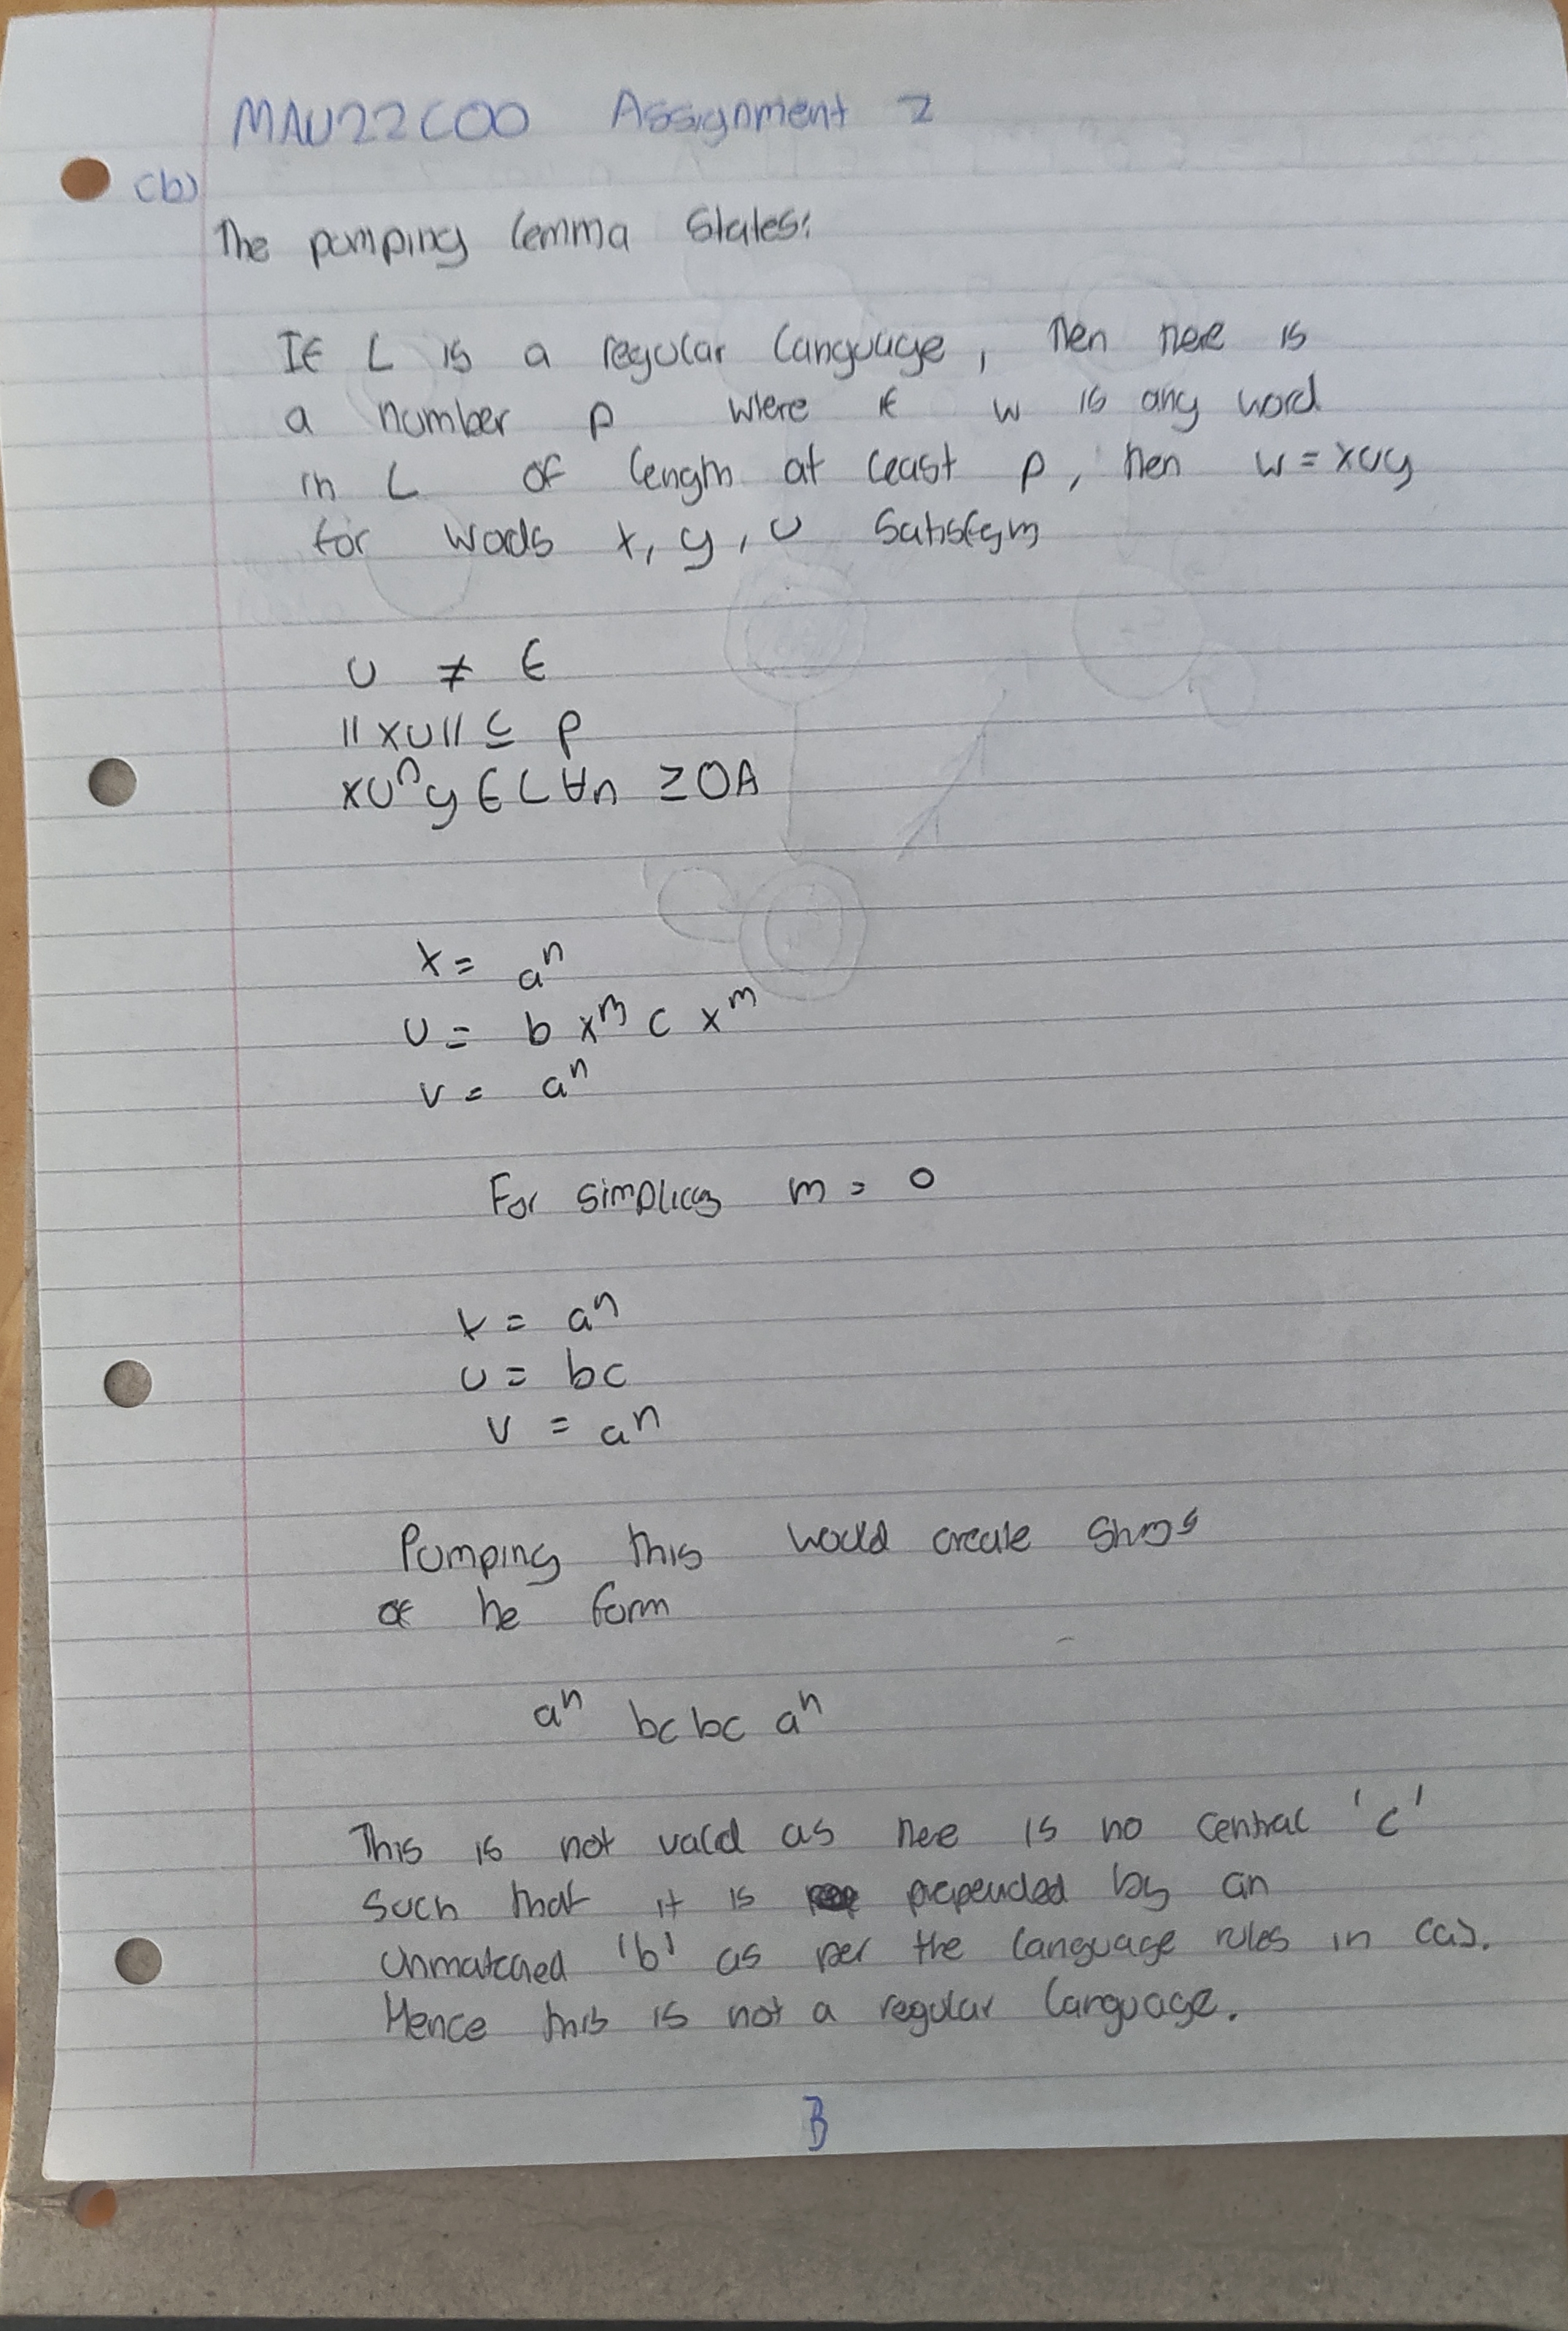 MAU22C00 Assignment 2
(b)
The pumping lemma states:
If L is a regular language, then there is
a number p where if w is any word
in L of length at least p, then w = xuy
for words x, y, u satisfying
u ≠ ε
||xu|| ≤ p
xuⁿy ∈ L ∀n ≥ 0A
x = aⁿ
u = b xᵐ c xᵐ
v = aⁿ
For simplicity m = 0
x = aⁿ
u = bc
v = aⁿ
Pumping this would create strings
of the form
aⁿ bcbc aⁿ
This is not valid as there is no central 'c'
such that it is prepended by an
unmatched 'b' as per the language rules in (a).
Hence this is not a regular language.
3